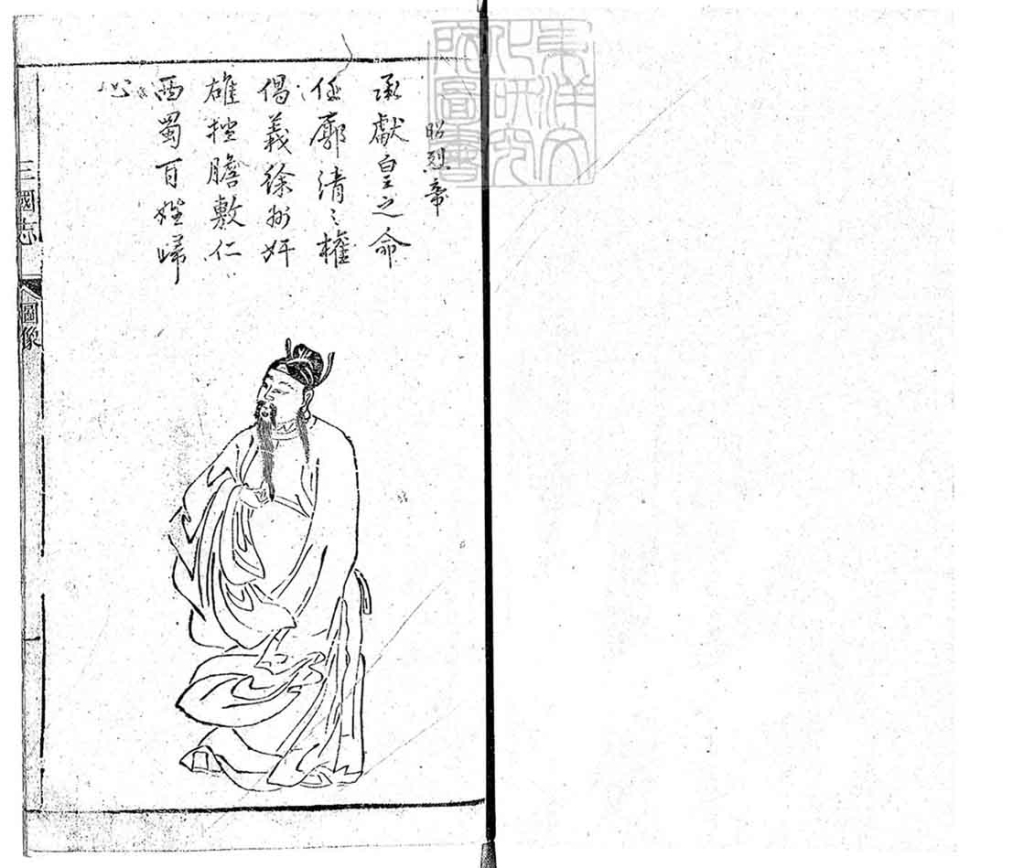 昭烈帝
承獻皇之命
任廓清之權
倡義徐州奸
雄挫膽敷仁
西蜀百姓歸
心
三國志
圖像
東洋文
化研究
所圖書